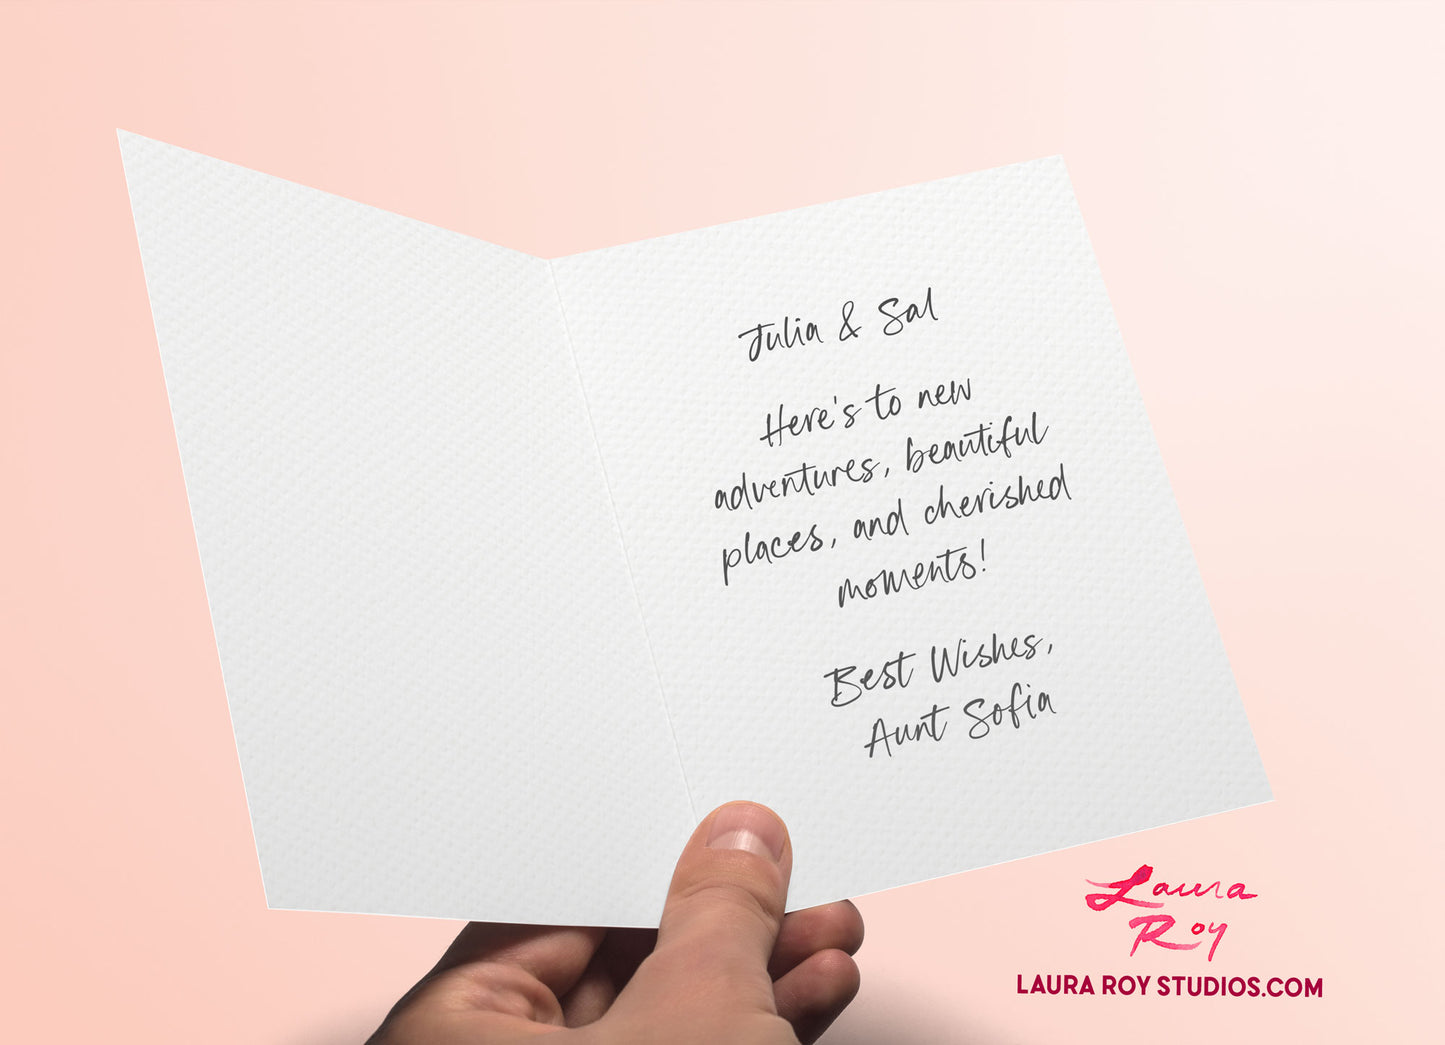 Julia & Sal
Here's to new
adventures, beautiful
places, and cherished
moments!
Best Wishes,
Aunt Sofia
Laura
Roy
LAURA ROY STUDIOS.COM